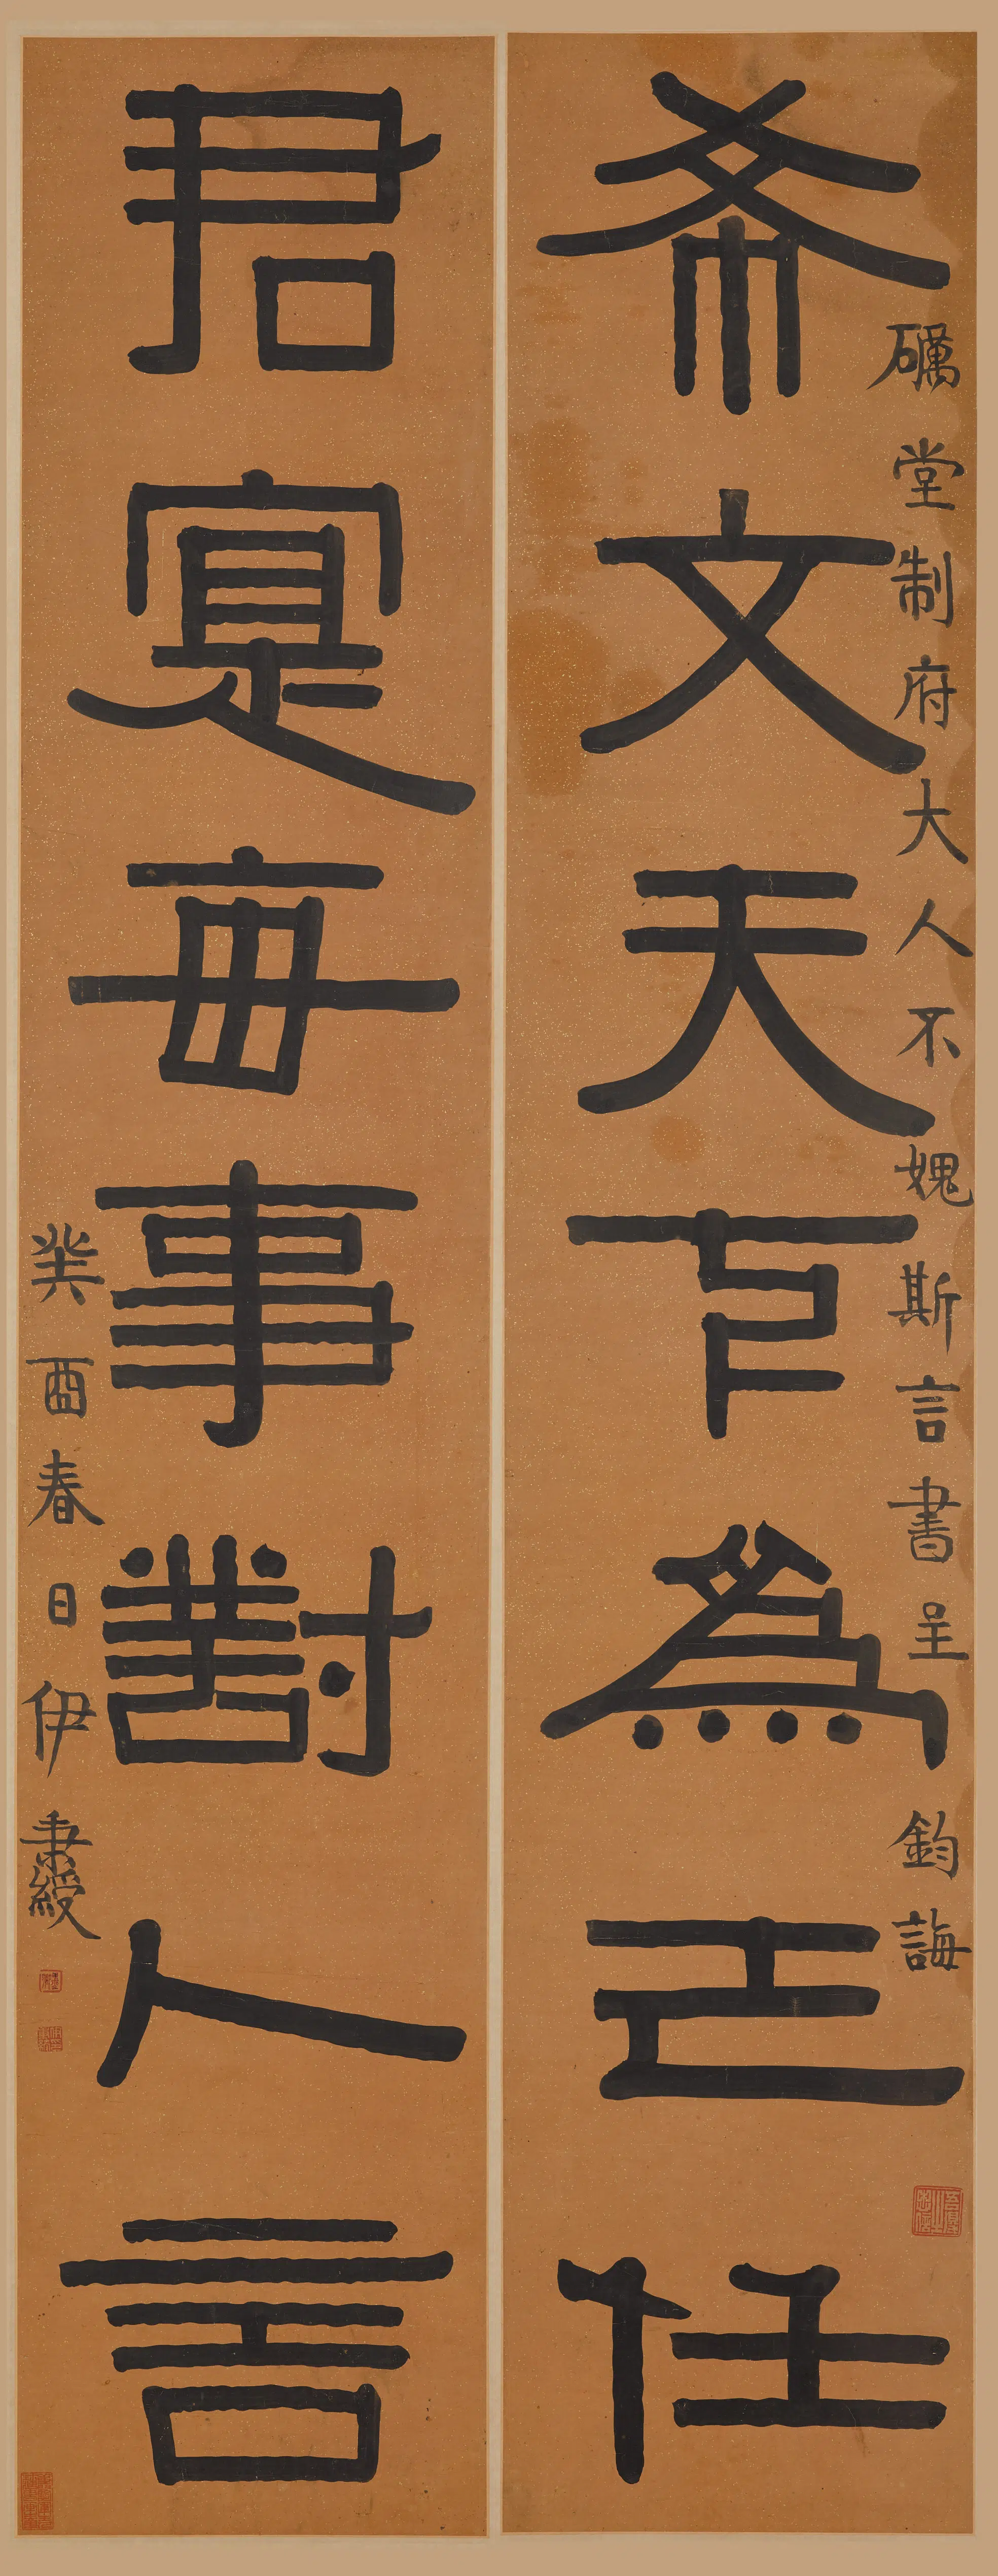 礪堂制府大人不媿斯言書呈
鈞誨
希文天下為己任
君寔每事對人言
癸酉春日伊秉綬